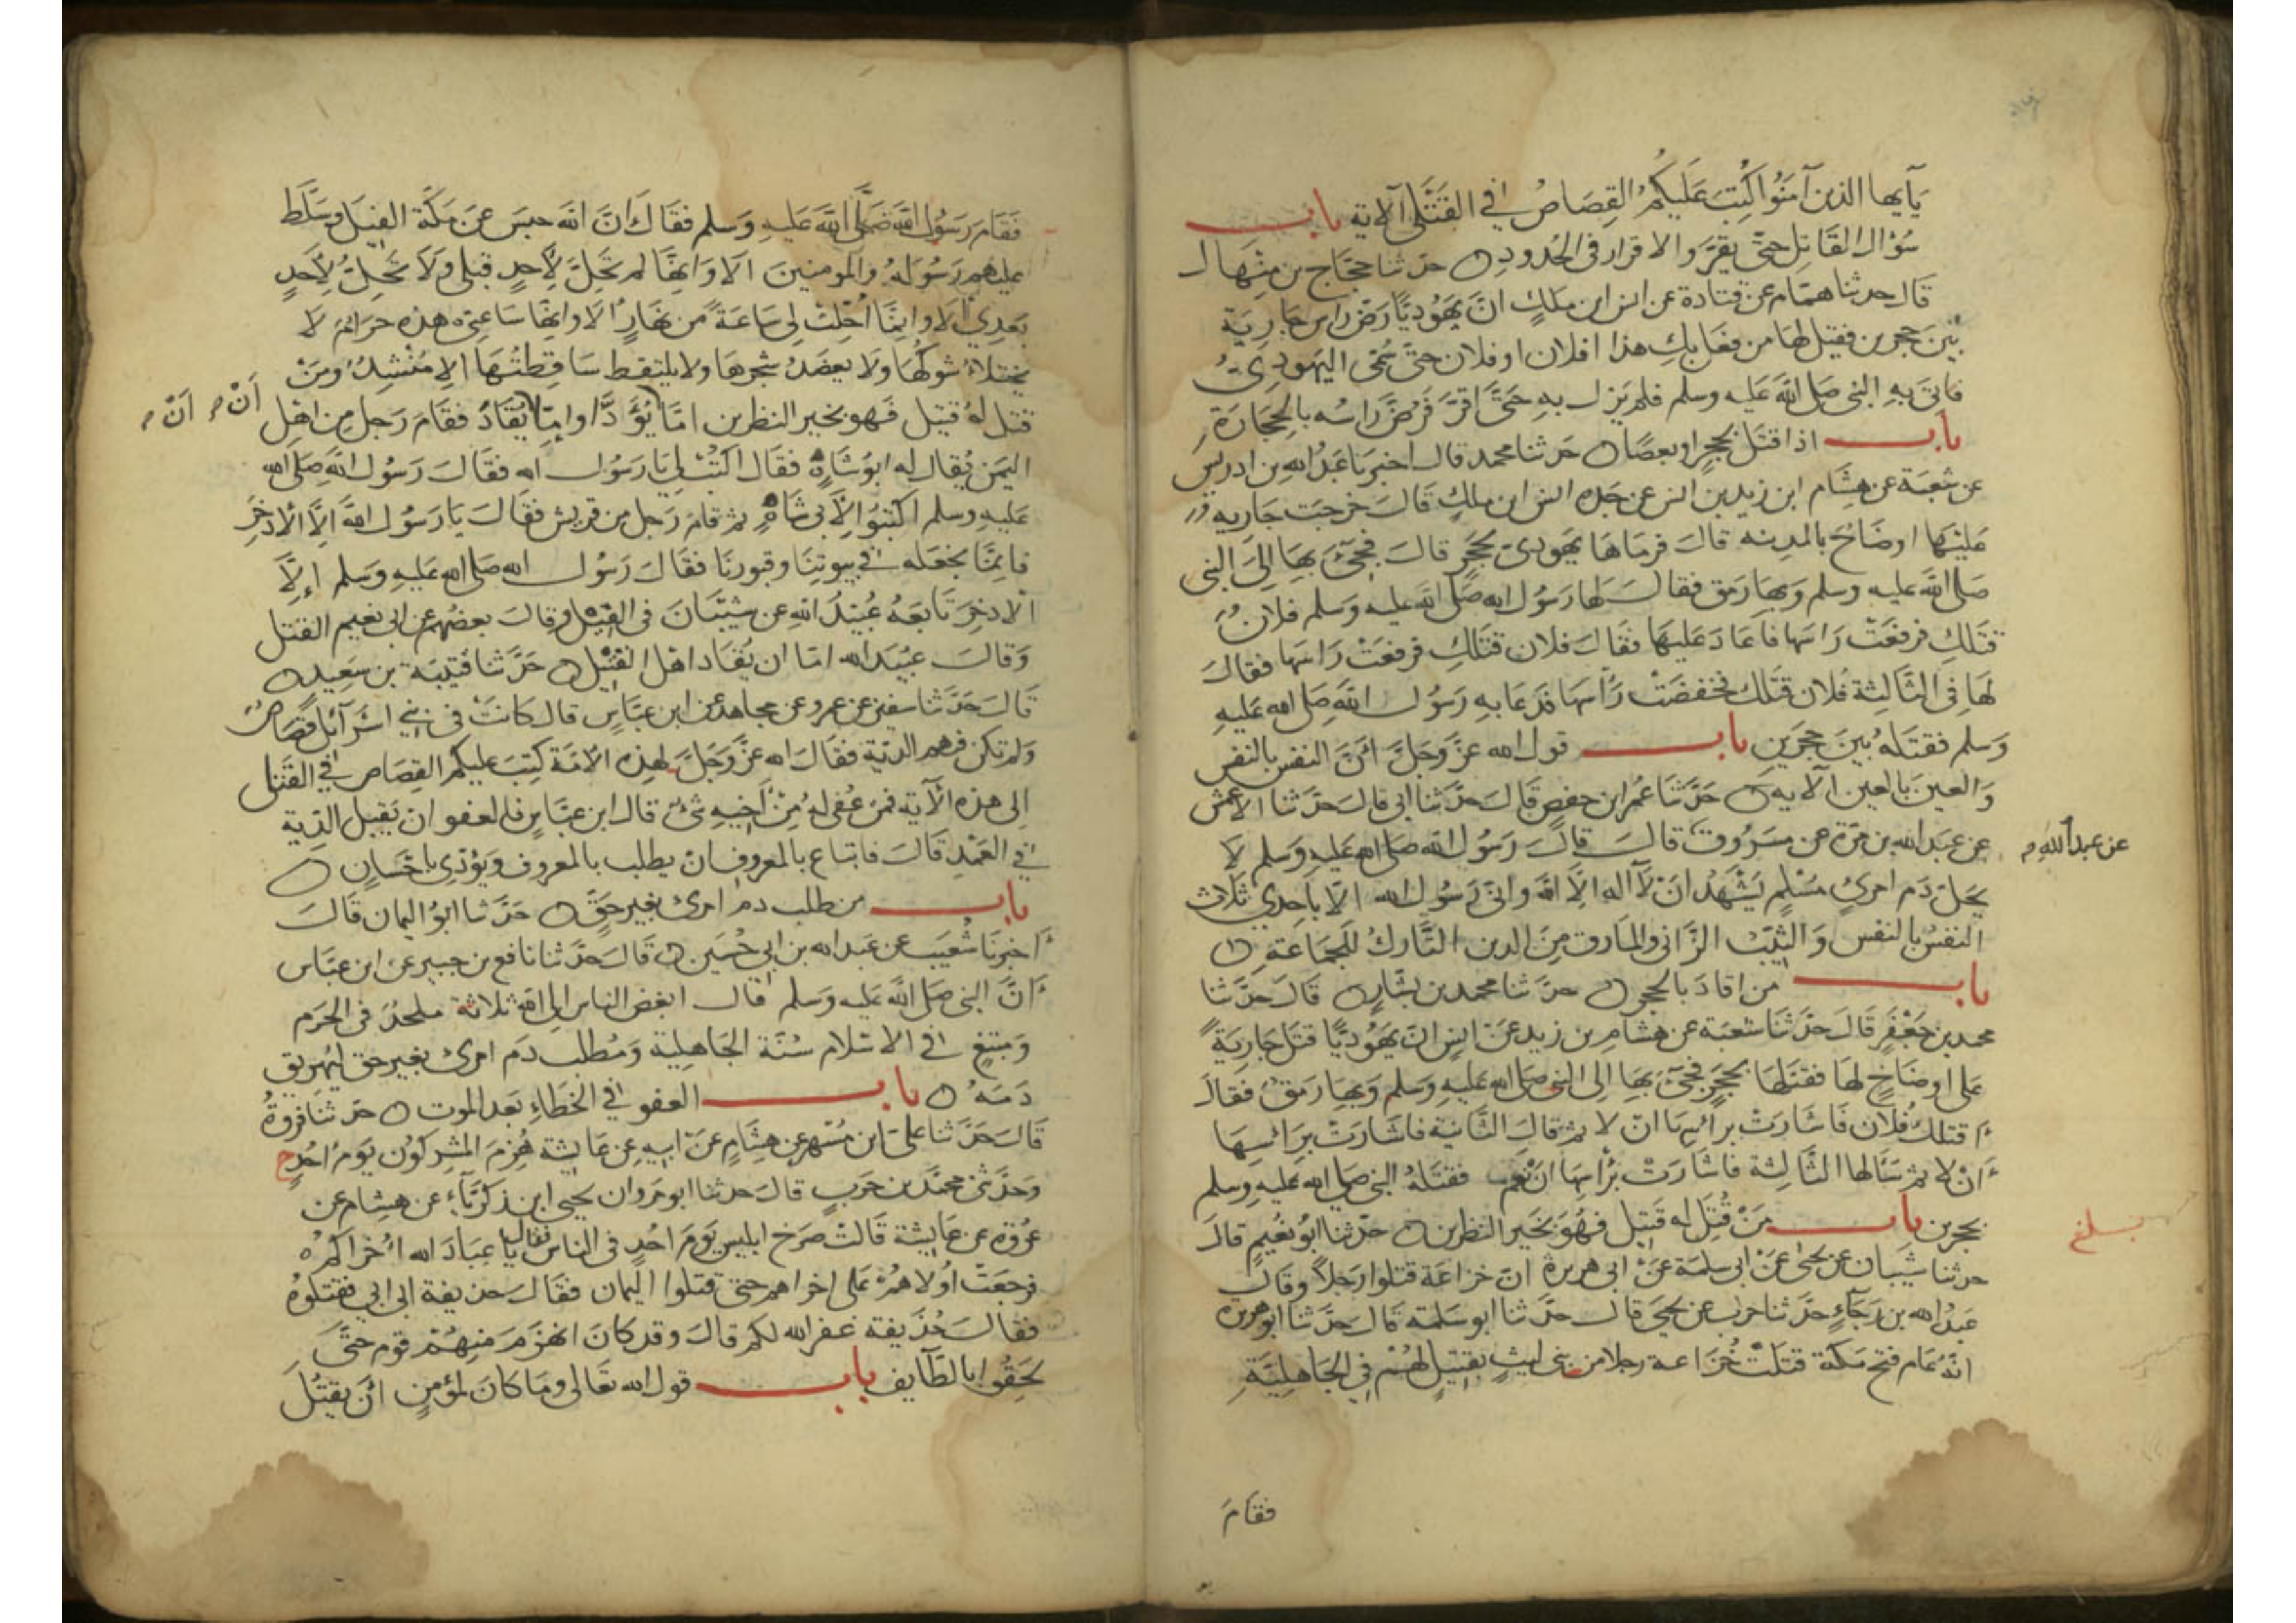 يآيها الذين آمنوا كتب عليكم القصاص في القتلى الاية باب
سؤال القاتل حتى يقر والاقرار في الحدود حدثنا حجاج بن منهال
قال حدثنا همام عن قتادة عن انس ابن ملك ان يهوديا رض راس جارية
بين حجرين فقيل لها من فعل بك هذا افلان او فلان حتى سمى اليهودي
فاتى به النبي صلى الله عليه وسلم فلم يزل به حتى اقر فرض راسه بالحجارة
باب اذا قتل بحجر او بعصا حدثنا محمد قال اخبرنا عبد الله بن ادريس
عن شعبة عن هشام ابن زيد بن انس عن جده انس ابن ملك قال خرجت جاريه
عليها اوضاح بالمدينه قال فرماها يهودي بحجر قال فجئ بها الى النبي
صلى الله عليه وسلم وبها رمق فقال لها رسول الله صلى الله عليه وسلم فلان
قتلك فرفعت راسها فاعاد عليها فقال فلان قتلك فرفعت راسها فقال
لها في الثالثة فلان قتلك فخفضت رأسها فدعا به رسول الله صلى الله عليه
وسلم فقتله بين حجرين باب قول الله عز وجل ان النفس بالنفس
والعين بالعين الايه حدثنا عمر ابن حفص قال حدثنا ابي قال حدثنا الاعمش
عن عبد الله بن مرة عن مسروق قال قال رسول الله صلى الله عليه وسلم لا
عن عبد الله
يحل دم امرئ مسلم يشهد ان لا اله الا الله واني رسول الله الا باحدى ثلاث
النفس بالنفس والثيب الزاني والمارق من الدين التارك للجماعة
باب من اقاد بالحجر حدثنا محمد بن بشار قال حدثنا
محمد بن جعفر قال حدثنا شعبة عن هشام بن زيد عن انس ان يهوديا قتل جارية
على اوضاح لها فقتلها بحجر فجئ بها الى النبي صلى الله عليه وسلم وبها رمق فقال
أقتلك فلان فاشارت برأسها ان لا ثم قال الثانية فاشارت برأسها
أن لا ثم سألها الثالثة فاشارت برأسها ان نعم فقتله النبي صلى الله عليه وسلم
بحجرين باب من قتل له قتيل فهو بخير النظرين حدثنا ابو نعيم قال
حدثنا شيبان عن يحيى عن ابي سلمة عن ابي هريرة ان خزاعة قتلوا رجلا وقال
عبد الله بن رجاء حدثنا حرب عن يحيى قال حدثنا ابو سلمة قال حدثنا ابو هريره
انه عام فتح مكة قتلت خزاعة رجلا من بني ليث بقتيل لهم في الجاهلية
فقام
فقام رسول الله صلى الله عليه وسلم فقال ان الله حبس عن مكة الفيل وسلط
عليهم رسوله والمومنين الا وانها لم تحل لاحد قبلي ولا تحل لاحد
بعدي الا وانما احلت لي ساعة من نهار الا وانها ساعتي هذه حرام لا
يختلا شوكها ولا يعضد شجرها ولا يلتقط ساقطتها الا منشد ومن
قتل له قتيل فهو بخير النظرين اما يؤدا واما يقاد فقام رجل من اهل
ان ان
اليمن يقال له ابو شاه فقال اكتب لي يا رسول الله فقال رسول الله صلى الله
عليه وسلم اكتبوا لابي شاه ثم قام رجل من قريش فقال يا رسول الله الا الاذخر
فانما نجعله في بيوتنا وقبورنا فقال رسول الله صلى الله عليه وسلم إلا
الاذخر تابعه عبيد الله عن شيبان في الفيل وقال بعضهم عن ابي نعيم القتل
وقال عبيد الله اما ان يقاد اهل القتيل حدثنا قتيبة بن سعيد
قال حدثنا سفين عن عمرو عن مجاهد عن ابن عباس قال كانت في بني اسرآئل قصاص
ولم تكن فيهم الدية فقال الله عز وجل لهذه الامة كتب عليكم القصاص في القتلى
الى هذه الآية فمن عفي له من أخيه شئ قال ابن عباس فالعفو ان يقبل الدية
في العمد قال فاتباع بالمعروف ان يطلب بالمعروف ويؤدي باحسان
باب من طلب دم امرئ بغير حق حدثنا ابو اليمان قال
أخبرنا شعيب عن عبد الله بن ابي حسين قال حدثنا نافع بن جبير عن ابن عباس
أن النبي صلى الله عليه وسلم قال ابغض الناس الى الله ثلاثة ملحد في الحرم
ومبتغ في الاسلام سنة الجاهلية ومطلب دم امرئ بغير حق ليهريق
دمه باب العفو في الخطاء بعد الموت حدثنا فروة
قال حدثنا علي ابن مسهر عن هشام عن ابيه عن عايشة هزم المشركون يوم احد ح
وحدثني محمد بن حرب قال حدثنا ابو مروان يحيى ابن زكرياء عن هشام عن
عروة عن عايشة قالت صرخ ابليس يوم احد في الناس فقال يا عباد الله اخراكم
فرجعت اولاهم على اخراهم حتى قتلوا اليمان فقال حذيفة ابي ابي فقتلوه
فقال حذيفة غفر الله لكم قال وقد كان انهزم منهم قوم حتى
لحقوا بالطآيف باب قول الله تعالى وما كان لمؤمن ان يقتل